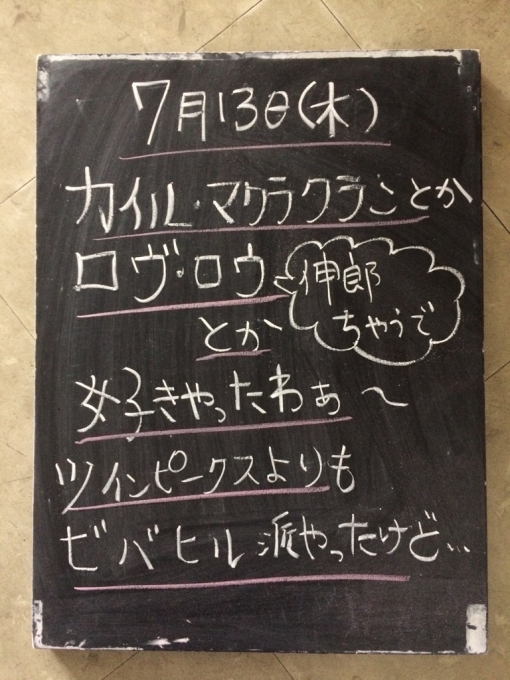 7月13日(木)
カイル・マクラクランとか
ロヴ・ロウ
伸郎
ちゃうで
とか
好きやったわぁ〜
ツインピークスよりも
ビバヒル派やったけど…